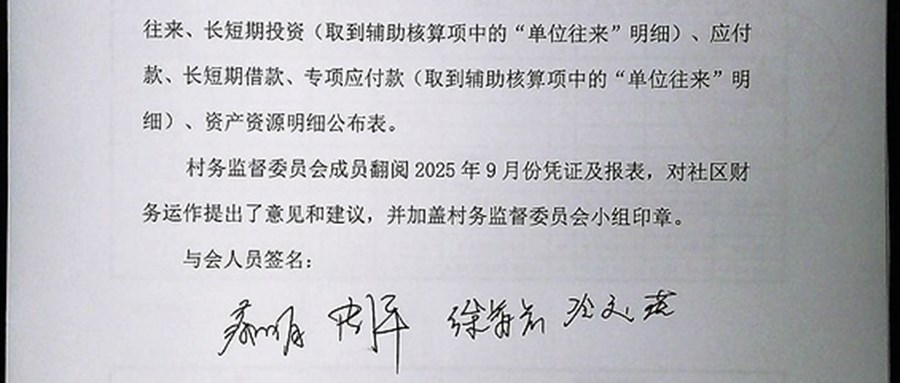 往来、长短期投资（取到辅助核算项中的“单位往来”明细）、应付
款、长短期借款、专项应付款（取到辅助核算项中的“单位往来”明
细）、资产资源明细公布表。
村务监督委员会成员翻阅 2025 年 9 月份凭证及报表，对社区财
务运作提出了意见和建议，并加盖村务监督委员会小组印章。
与会人员签名：